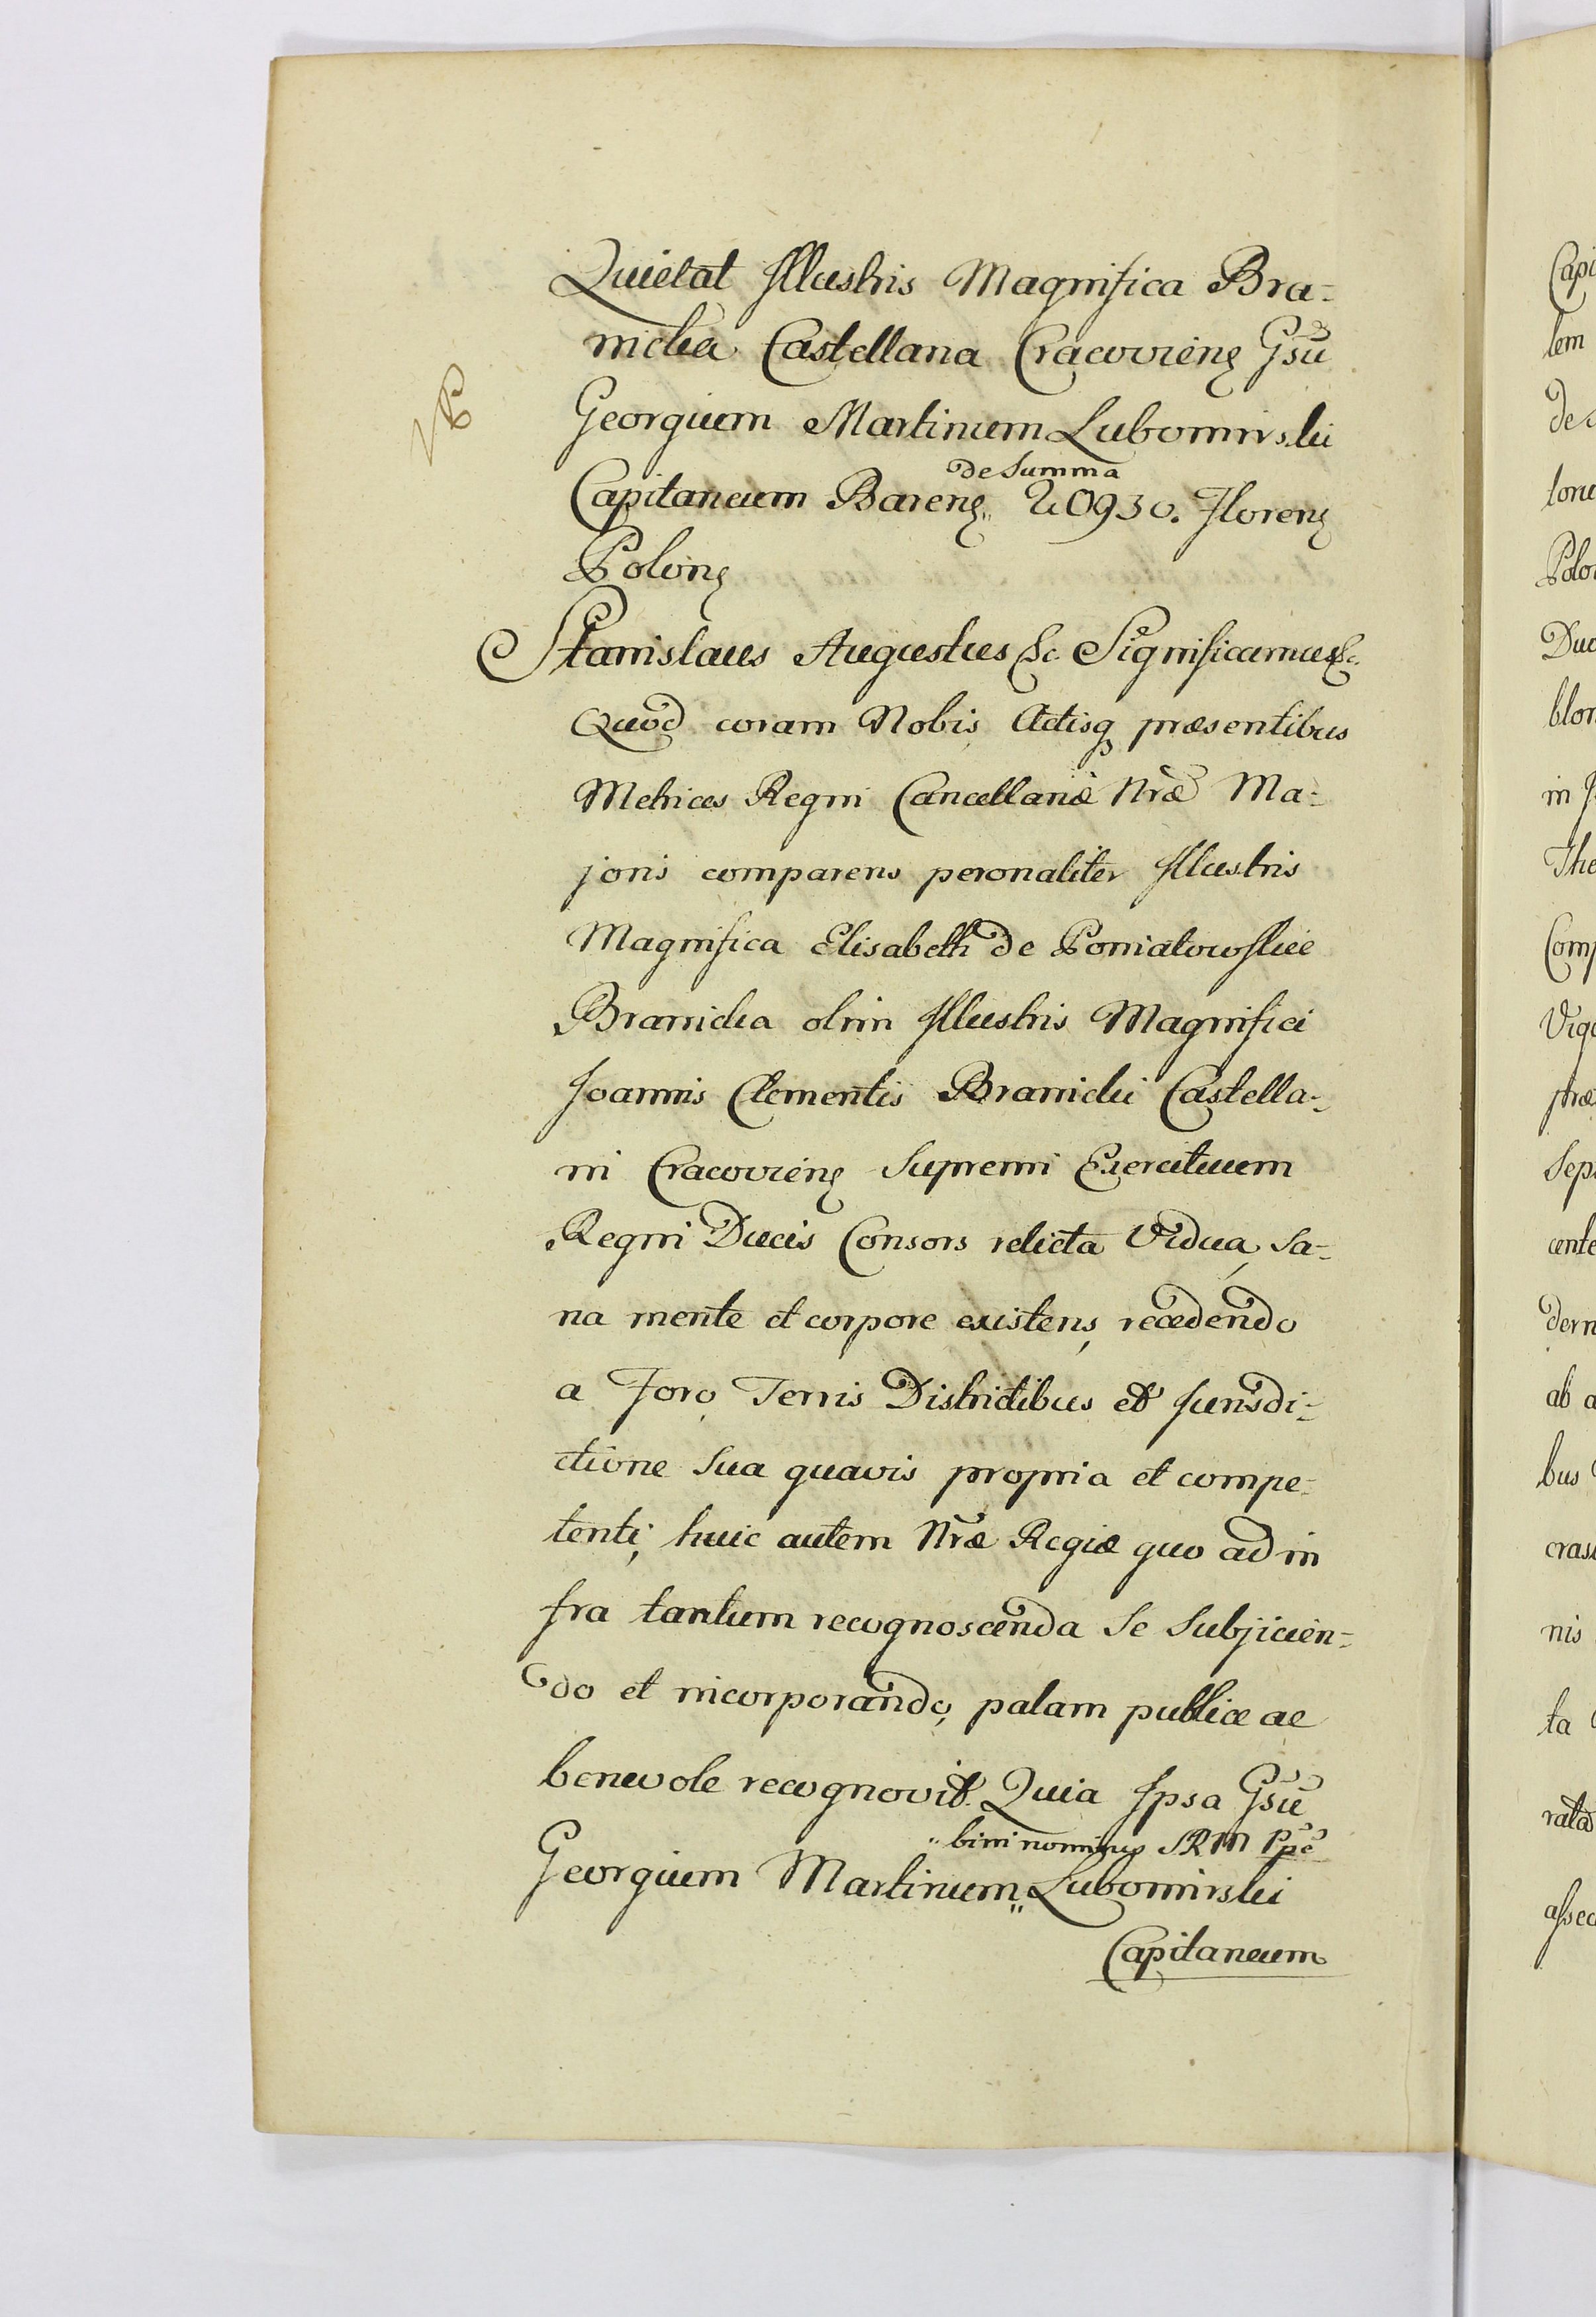 Quietat Illustris Magnifica Bra-
nicka Castellana Cracovien̄ Gsū
Georgium Martinum Lubomirski
de Summa
Capitaneum Baren̄ 20930. Floren̄
Polon̄
Stanislaus Augustus &c. Significamus &c.
Quod coram Nobis Actisq præsentibus
Metrices Regni Cancellariæ Nræ Ma-
joris comparens peronaliter Illustris
Magnifica Elisabeth de Poniatowskie
Branicka olim Illustris Magnifici
Joannis Clementis Branicki Castella-
ni Cracovien̄ Supremi Exercituum
Regni Ducis Consors relicta Vidua, Sa-
na mente et corpore existens, recedendo
a Foro, Terris Districtibus et Jurisdi-
ctione Sua quavis propria et compe-
tenti, huic autem Nræ Regiæ quo ad in
fra tantum recognoscenda Se Subjicien-
do et incorporando, palam publice ac
benevole recognovit. Quia Ipsa Gsū
Georgium Martinum Lubomirski
bini nominis SRM Ppe
Capitaneum
Capi
lem
Polo
Duc
blon
in
The
Comp
Vigi
præ
Sep
cente
dern
ab a
bus
cras
nis
ta
rata
assec